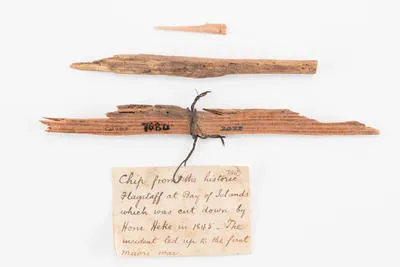 7080
7080
Chip from the historic
Flagstaff at Bay of Islands
which was cut down by
Hone Heke in 1845. The
incident led up to the first
maori war.